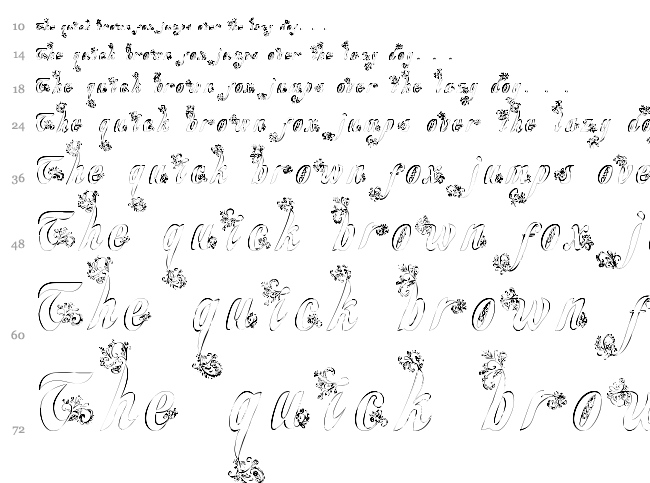 10 The quick brown fox jumps over the lazy dog. . . .
14 The quick brown fox jumps over the lazy dog. . . .
18 The quick brown fox jumps over the lazy dog. . . .
24 The quick brown fox jumps over the lazy do
36 The quick brown fox jumps ove
48 The quick brown fox j
60 The quick brown f
72 The quick brow